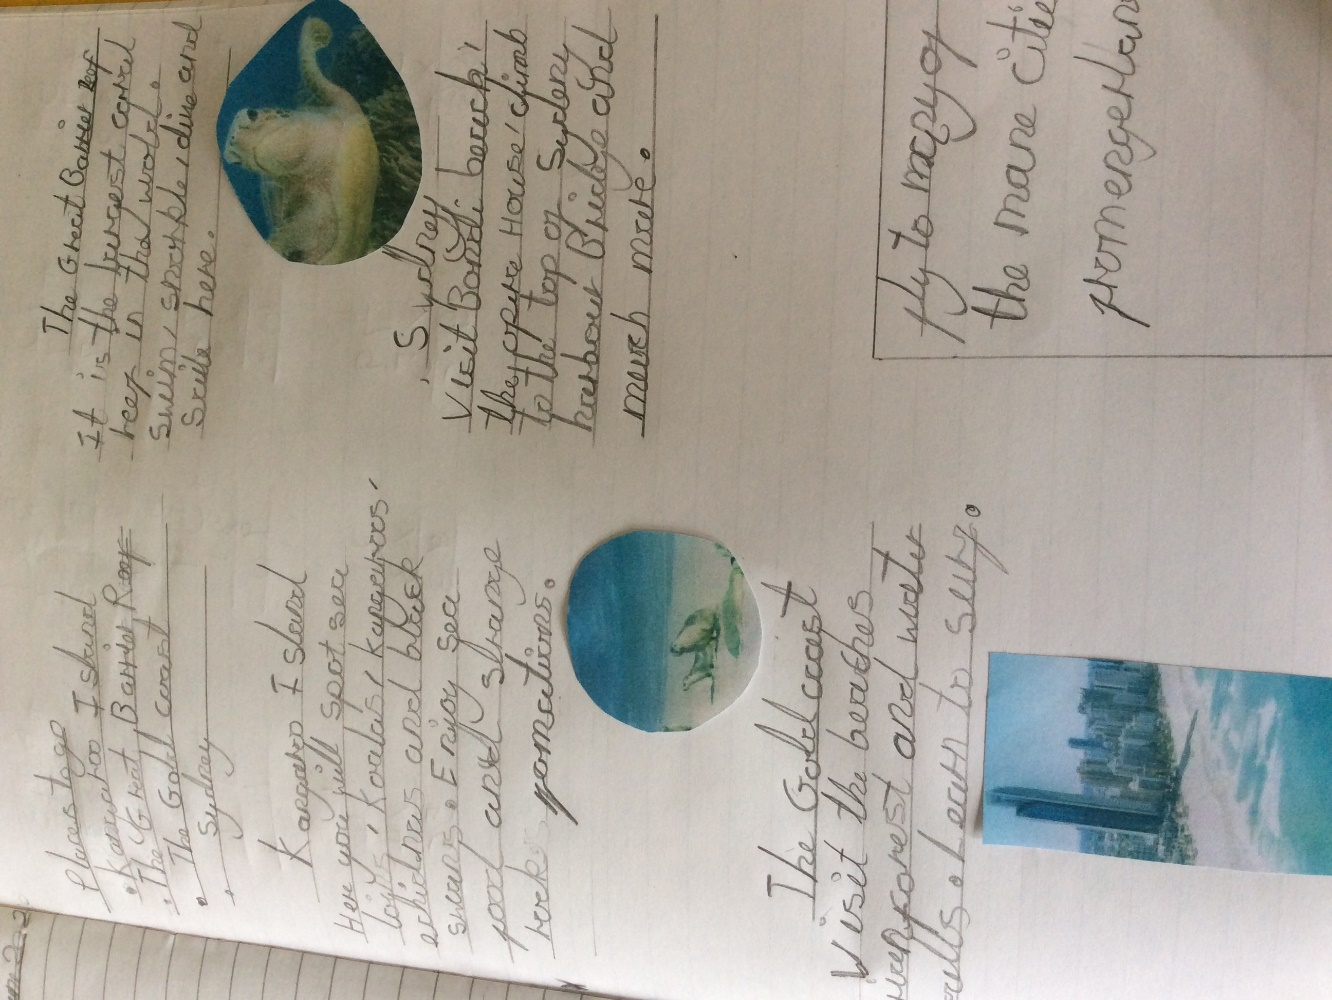 Places to go
• Kangaroo Island
• The Great Barrier Reef
• The Gold coast
• Sydney
Kangaroo Island
Here you will spot sea
koalas, kangaroos,
echidnas and black
swans. Enjoy sea
food and strange
rock formations.
The Gold coast
Visit the beaches
and water
Learn to surf.
The Great Barrier Reef
It is the largest coral
reef in the world.
Swim, snorkle, dive and
here.
Sydney
Visit Bondi beach,
the opera House, climb
to the top of Sydney
harbour Bridge and
much more.
fly to many of
the mane citie